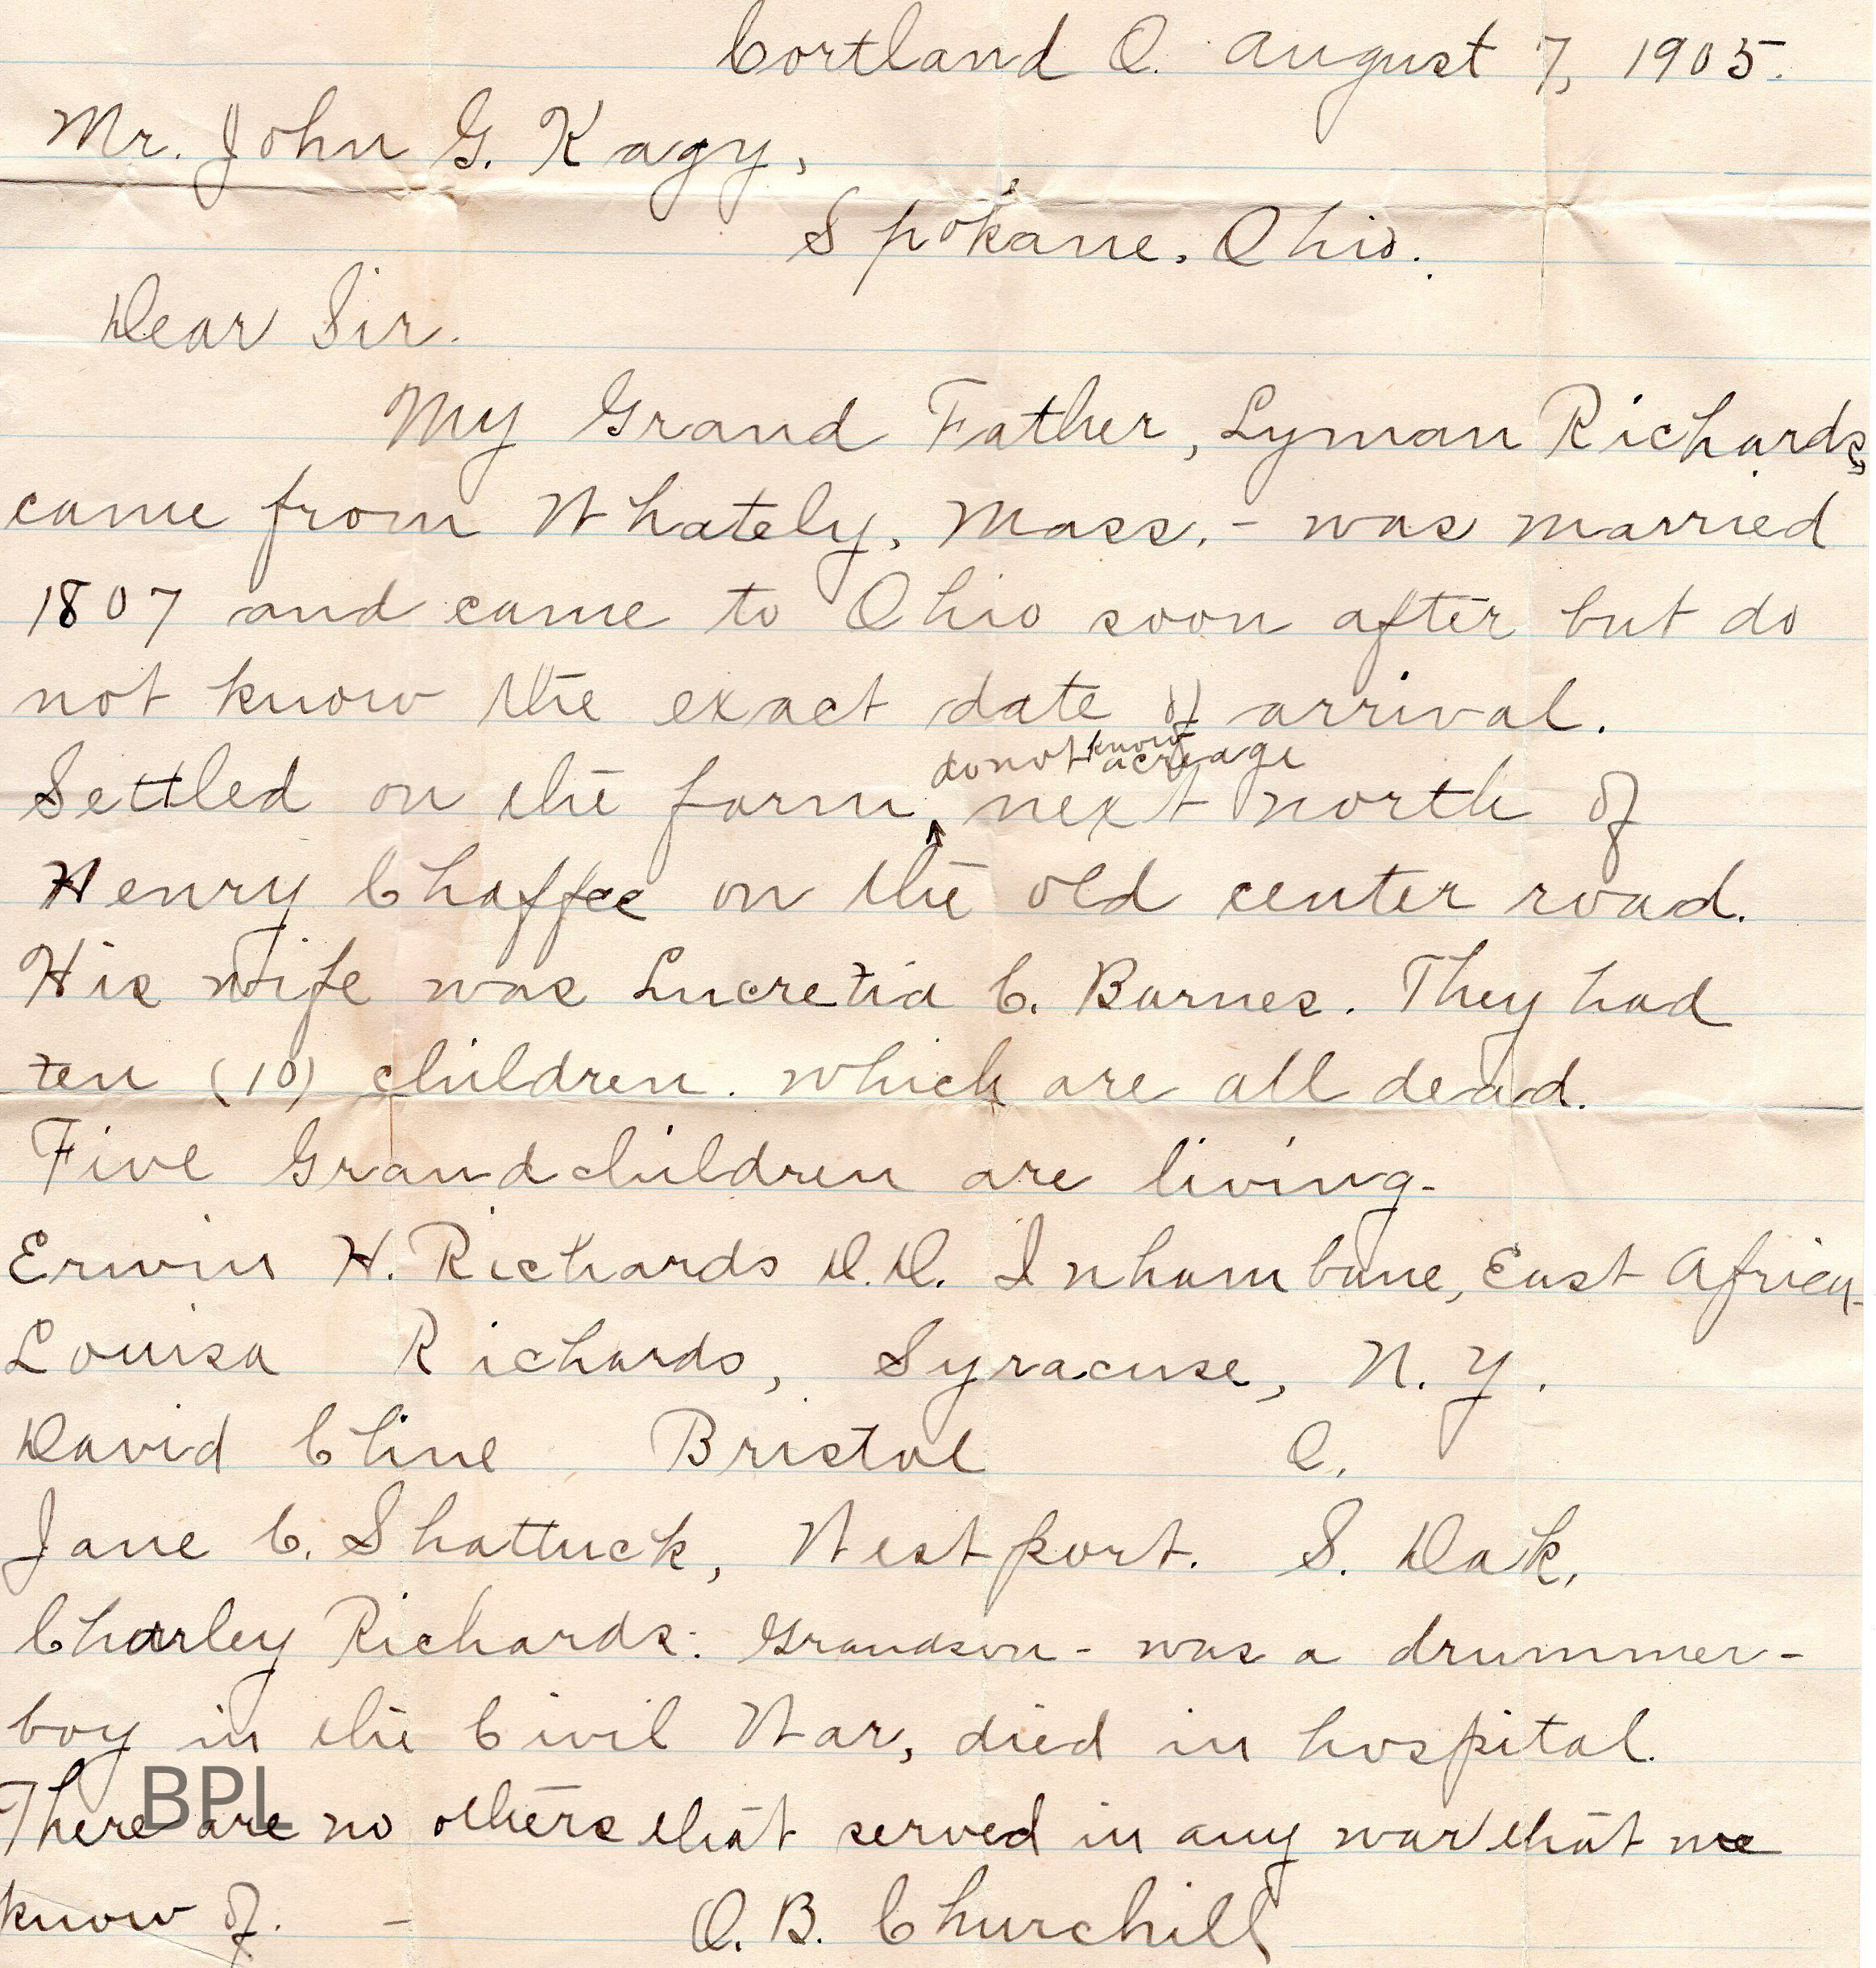 Cortland O. August 7, 1905.
Mr. John G. Kagy,
Spokane, Ohio.
Dear Sir.
My Grand Father, Lyman Richards,
came from Whately, Mass. - was married
1807 and came to Ohio soon after but do
not know the exact date of arrival.
do not know acreage
Settled on the farm, next north of
Henry Chaffee on the old center road.
His wife was Lucretia C. Barnes. They had
ten (10) children. which are all dead.
Five Grandchildren are living-
Erwin H. Richards D.D. Inhambane, East Africa-
Louisa Richards, Syracuse, N.Y.
David Cline Bristol O.
Jane C. Shattuck, Westport. S. Dak.
Charley Richards: Grandson - was a drummer-
boy in the Civil War, died in hospital.
There are no others that served in any war that we
know of. - O.B. Churchill
BPL